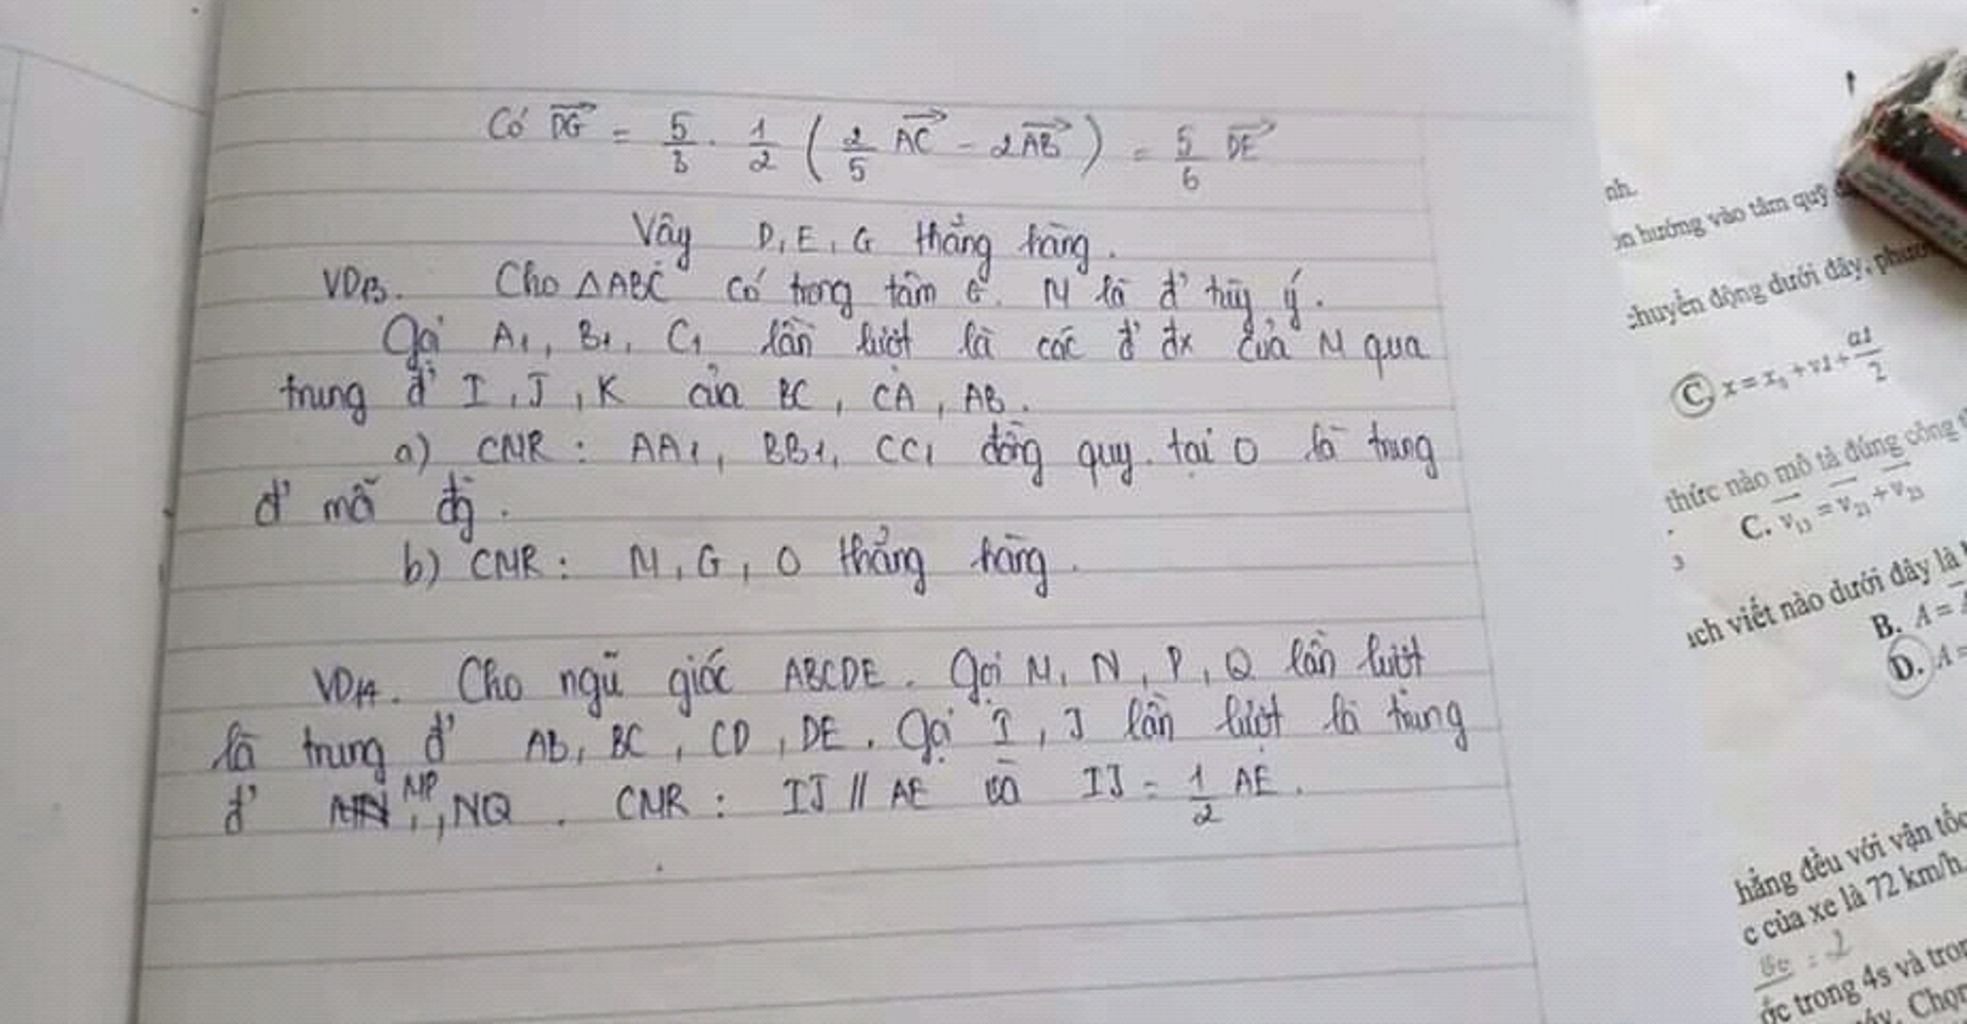 Có DG = 5/3 . 1/2 ( 2/5 AC - 2AB ) = 5/6 DE
Vậy D, E, G thẳng hàng.
VD13. Cho △ABC có trọng tâm G. M là đ' tùy ý.
Gọi A1, B1, C1 lần lượt là các đ' đx của M qua
trung đ' I, J, K của BC, CA, AB.
a) CMR: AA1, BB1, CC1 đồng quy tại O là trung
đ' mỗi đg.
b) CMR: M, G, O thẳng hàng.
VD14. Cho ngũ giác ABCDE. Gọi M, N, P, Q lần lượt
là trung đ' AB, BC, CD, DE. Gọi I, J lần lượt là trung
đ' MP, NQ. CMR: IJ // AE và IJ = 1/2 AE.
nh.
hướng vào tâm quỹ
chuyển động dưới đây,
C. x = x0 + vt + at/2
thức nào mô tả đúng công
C. v13 = v21 + v23
3
ách viết nào dưới đây là
B. A =
D. A =
hẳng đều với vận tốc
c của xe là 72 km/h.
= 2
ốc trong 4s và
Chọn